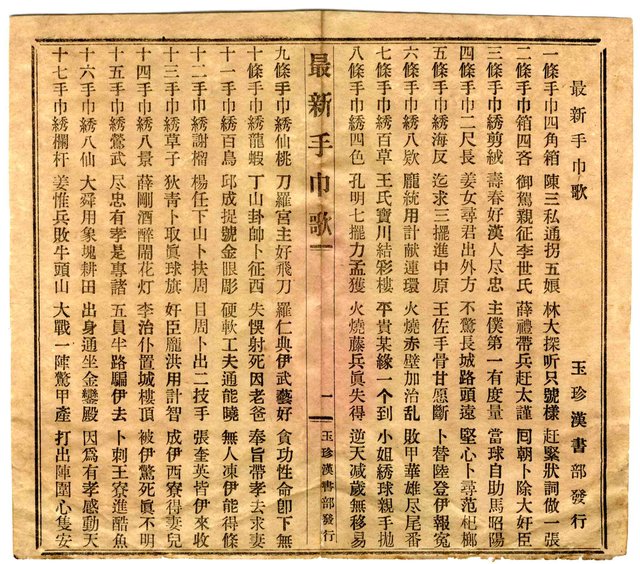 最新手巾歌　玉珍漢書部發行
一條手巾四角箱　陳三私通拐五娘　林大探听只號樣　赶緊狀詞做一張
二條手巾箱四吝　御駕親征李世氏　薛禮帶兵赶太謹　囘朝卜除大奸臣
三條手巾綉剪絨　壽春好漢人尽忠　主僕第一有度量　當球自助馬昭陽
四條手巾二尺長　姜女尋君出外方　不驚長城路頭遠　堅心卜尋范杞榔
五條手巾綉海反　迄求三擺進中原　王佐手骨甘愿斷　卜替陸登伊報寃
六條手巾綉八欵　龐統用計献連環　火燒赤壁加治乱　敗甲華雄尽尾番
七條手巾綉百草　王氏寶川結彩樓　平貴某緣一个到　小姐綉球親手抛
八條手巾綉四色　孔明七擺力孟獲　火燒藤兵眞失得　逆天减歲無移易
最新手巾歌　一　玉珍漢書部發行
九條手巾綉仙桃　刀羅宮主好飛刀　羅仁典伊武藝好　貪功性命卽下無
十條手巾綉龍蝦　丁山卦帥卜征西　失悮射死因老爸　奉旨帶孝去求妻
十一手巾綉百鳥　邱成提號金眼彫　硬軟工夫通能曉　無人凍伊能得條
十二手巾綉謝榴　楊任下山卜扶周　目周卜出二技手　張奎英皆伊來收
十三手巾綉草子　狄青卜取眞珠旗　奸臣龐洪用計智　成伊西寮得妻兒
十四手巾綉八景　薛剛酒醉鬧花灯　李治仆置城樓頂　被伊驚死眞不明
十五手巾綉鶯武　尽忠有孝是專諸　五員半路騙伊去　卜刺王寮進酷魚
十六手巾綉八仙　大舜用象塊耕田　出身通坐金鑾殿　因爲有孝感動天
十七手巾綉欄杆　姜惟兵敗牛頭山　大戰一陣驚甲產　打出陣圍心隻安